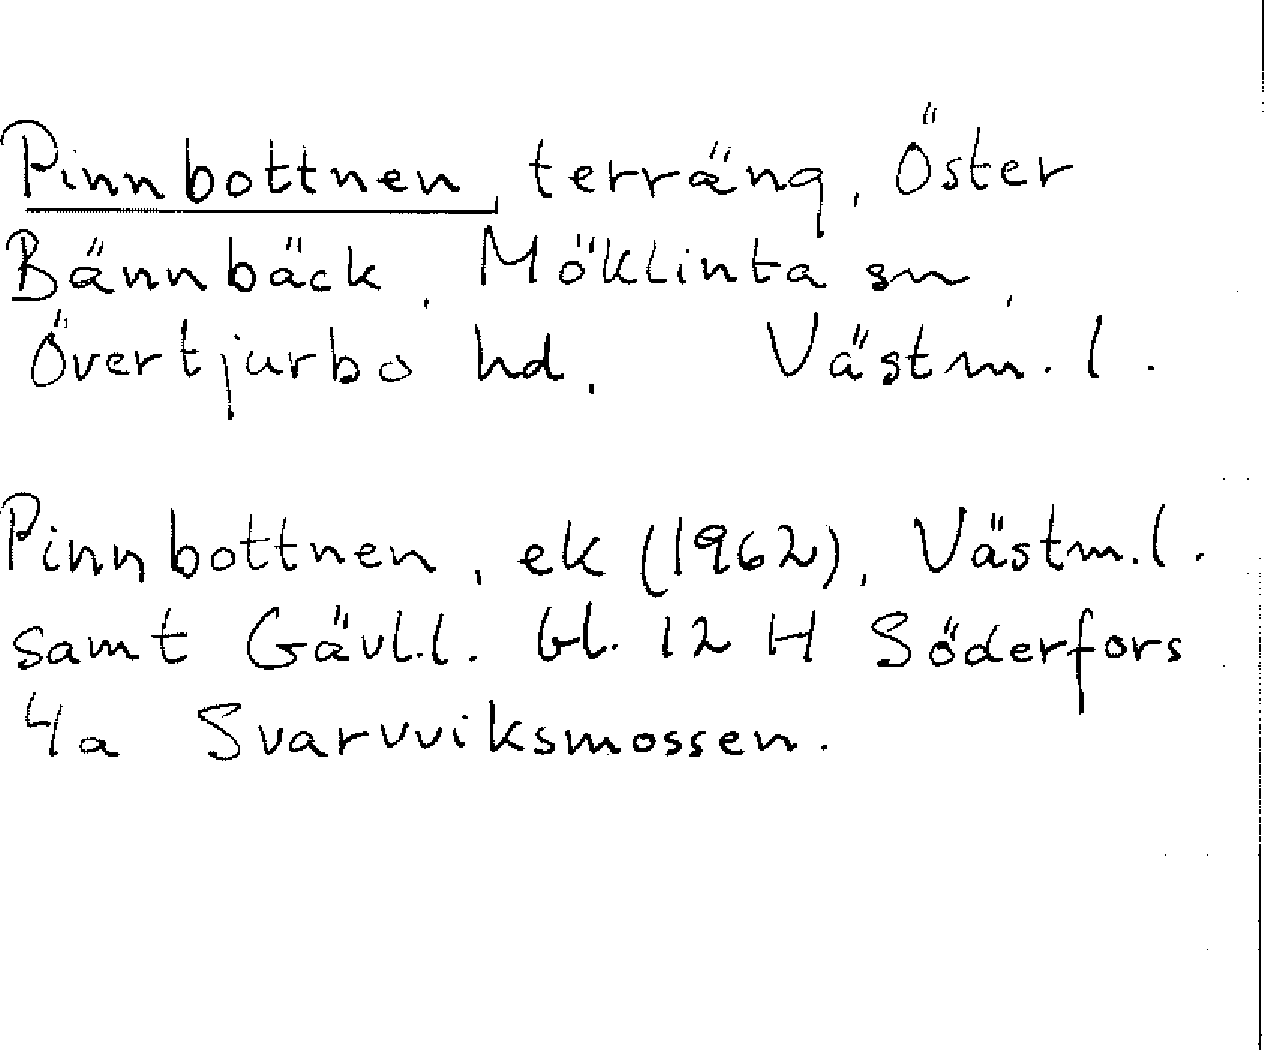 Pinnbottnen, terräng, Öster
Bännbäck, Möklinta sn,
Övertjurbo hd. Västm. l.
Pinnbottnen, ek (1962), Västm.l.
samt Gävl.l. bl. 12 H Söderfors
4a Svarvviksmossen.